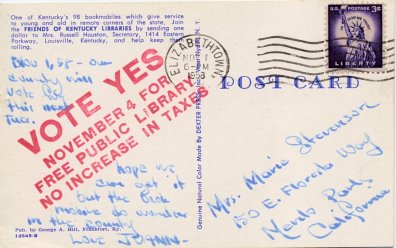 One of Kentucky's 98 bookmobiles which give service
to young and old in remote corners of the state. Join
the FRIENDS OF KENTUCKY LIBRARIES by sending one
dollar to Mrs. Russell Houston, Secretary, 1414 Eastern
Parkway, Louisville, Kentucky, and help keep them
rolling.
Nov 1, 58 - Our
county will
vote for
this next
Tues.
VOTE YES
NOVEMBER 4 FOR
FREE PUBLIC LIBRARY
NO INCREASE IN TAXES
hope we
can get it
but the
more so
in the county
Love JOANN-
Pub. by George A. Hill, Frankfort, Ky.
12545-B
Genuine Natural Color Made By DEXTER PRESS
ELIZABETHTOWN,
NOV 1
PM
1958
U.S. POSTAGE 3¢
LIBERTY
POST CARD
Mrs. Marie Stevenson
150 E. Floresta Way
Menlo Park
California